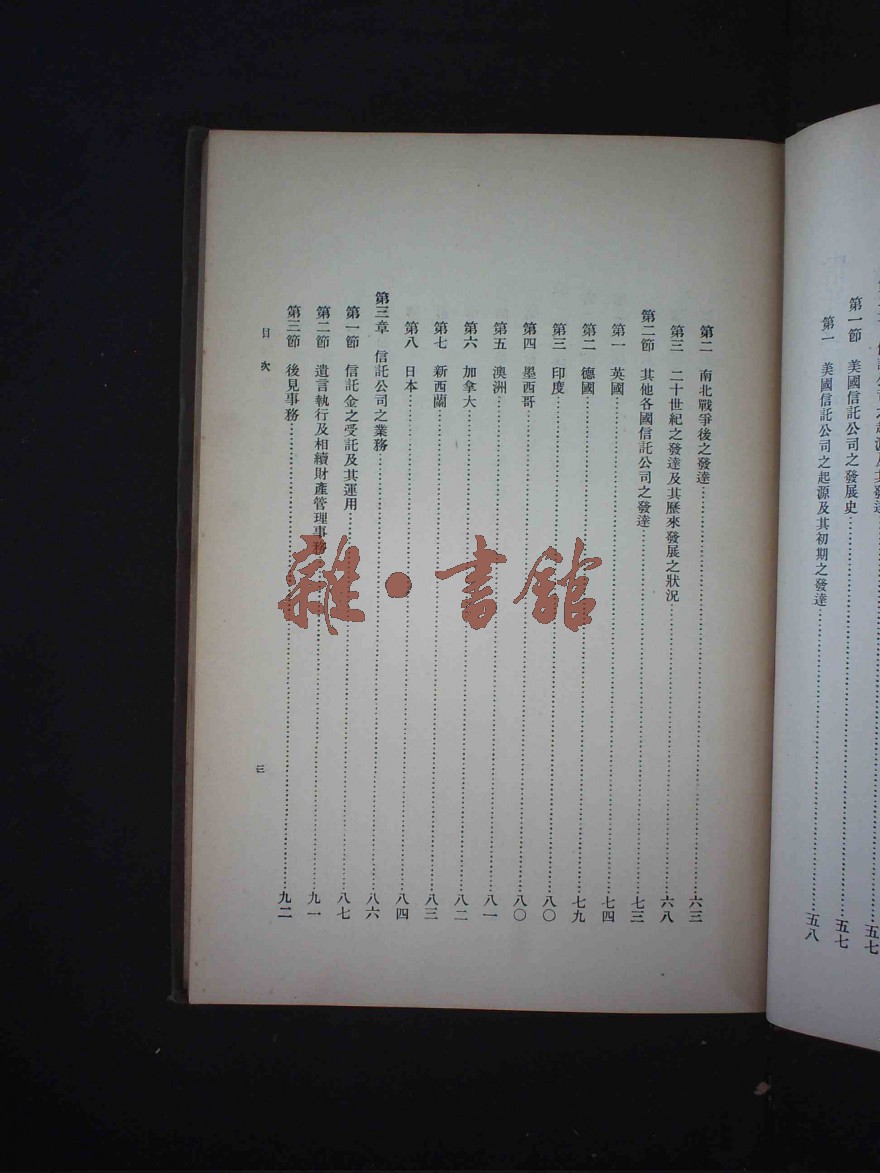 第一節　美國信託公司之發展史……五七
第一　美國信託公司之起源及其初期之發達……五八
第二　南北戰爭後之發達……六三
第三　二十世紀之發達及其歷來發展之狀況……六八
第二節　其他各國信託公司之發達……七三
第一　英國……七四
第二　德國……七九
第三　印度……八〇
第四　墨西哥……八〇
第五　澳洲……八一
第六　加拿大……八二
第七　新西蘭……八三
第八　日本……八四
第三章　信託公司之業務……八六
第一節　信託金之受託及其運用……八七
第二節　遺言執行及相續財產管理事務……九一
第三節　後見事務……九二
目次
三
雜·書館